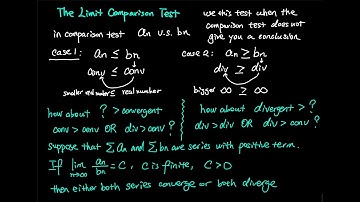 The Limit Comparison Test
use this test when the
comparison test does not
give you a conclusion
in comparison test an v.s. bn
case 1: an ≤ bn
conv ≤ conv
smaller real number ≤ real number
case 2: an ≥ bn
div ≥ div
bigger ∞ ≥ ∞
how about ? > convergent
conv > conv OR div > conv ?
how about divergent > ?
div > div OR div > conv ?
suppose that Σ an and Σ bn are series with positive term.
If lim n→∞ an/bn = C, C is finite, C > 0
then either both series converge or both diverge